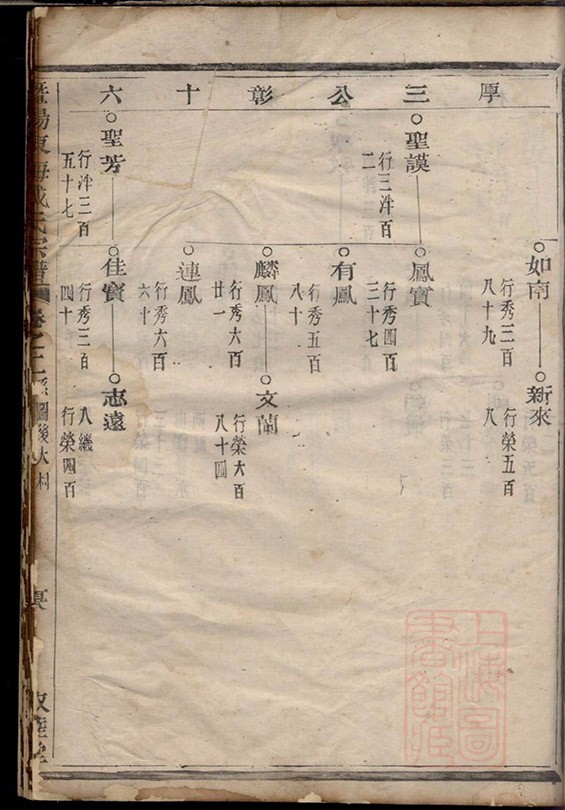 厚三公彰十六
如南
行秀三百
八十九
新來
行榮五百
八
聖謨
行三泮百
二
鳳寶
行秀四百
三十七
有鳳
行秀五百
八十
麟鳳
行秀六百
廿一
文蘭
行榮六百
八十四
連鳳
行秀六百
六十
聖芳
行泮三百
五十七
佳寶
行秀三百
四十
志遠
入繼
行榮四百
氏宗譜
卷之
系圖後大村
上海圖書館藏